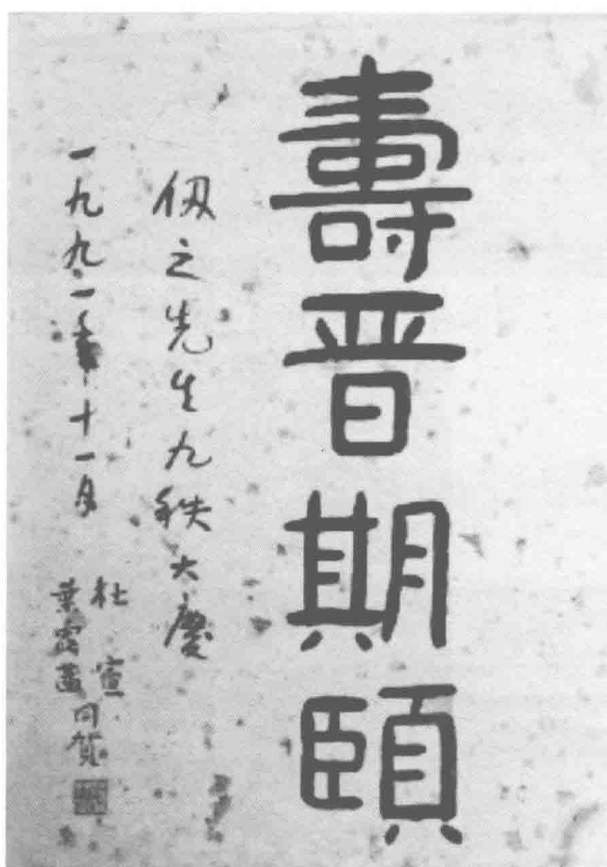 壽晋期頤
仭之先生九秩大慶
一九九一年十一月
杜宣
葉露茜同賀